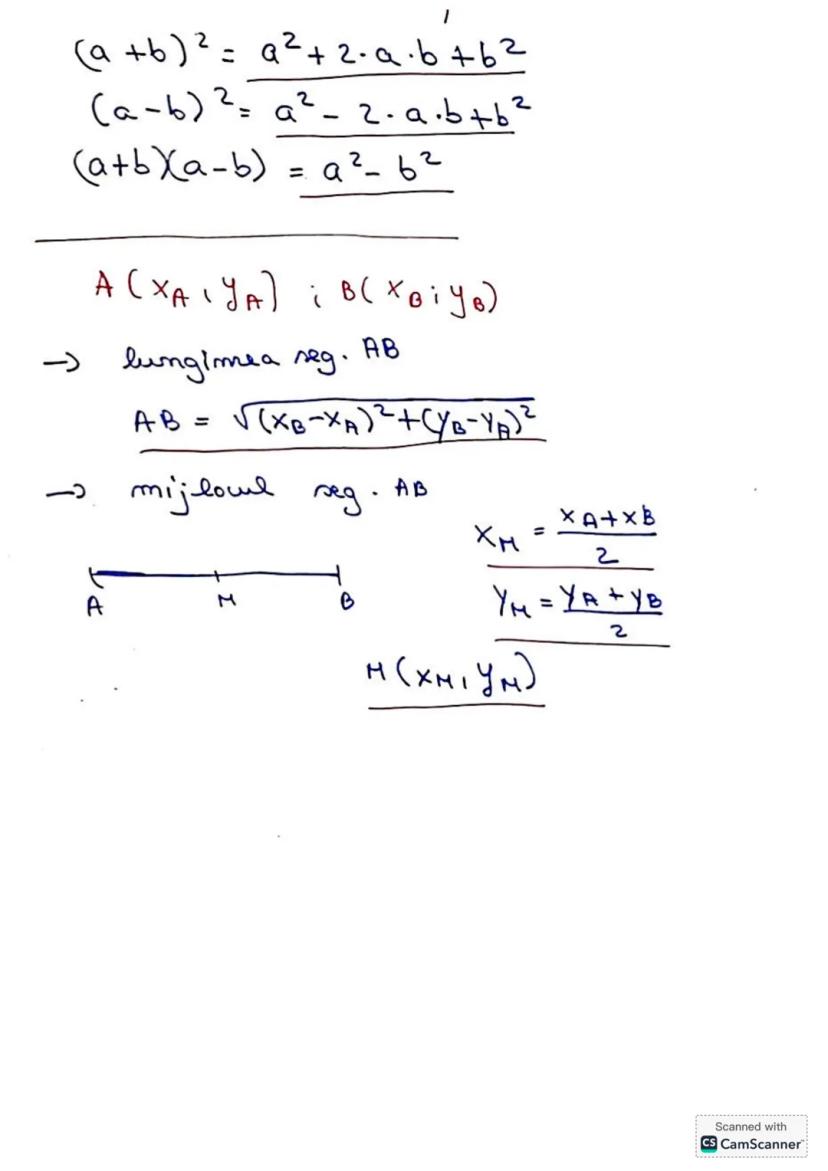 (a+b)² = a² + 2·a·b + b²
(a-b)² = a² - 2·a·b + b²
(a+b)(a-b) = a² - b²
A(xA, yA) ; B(xB; yB)
→ lungimea seg. AB
AB = √(xB-xA)²+(yB-yA)²
→ mijlocul seg. AB
xM = (xA+xB)/2
A M B
yM = (yA+yB)/2
M(xM, yM)
Scanned with
CS CamScanner